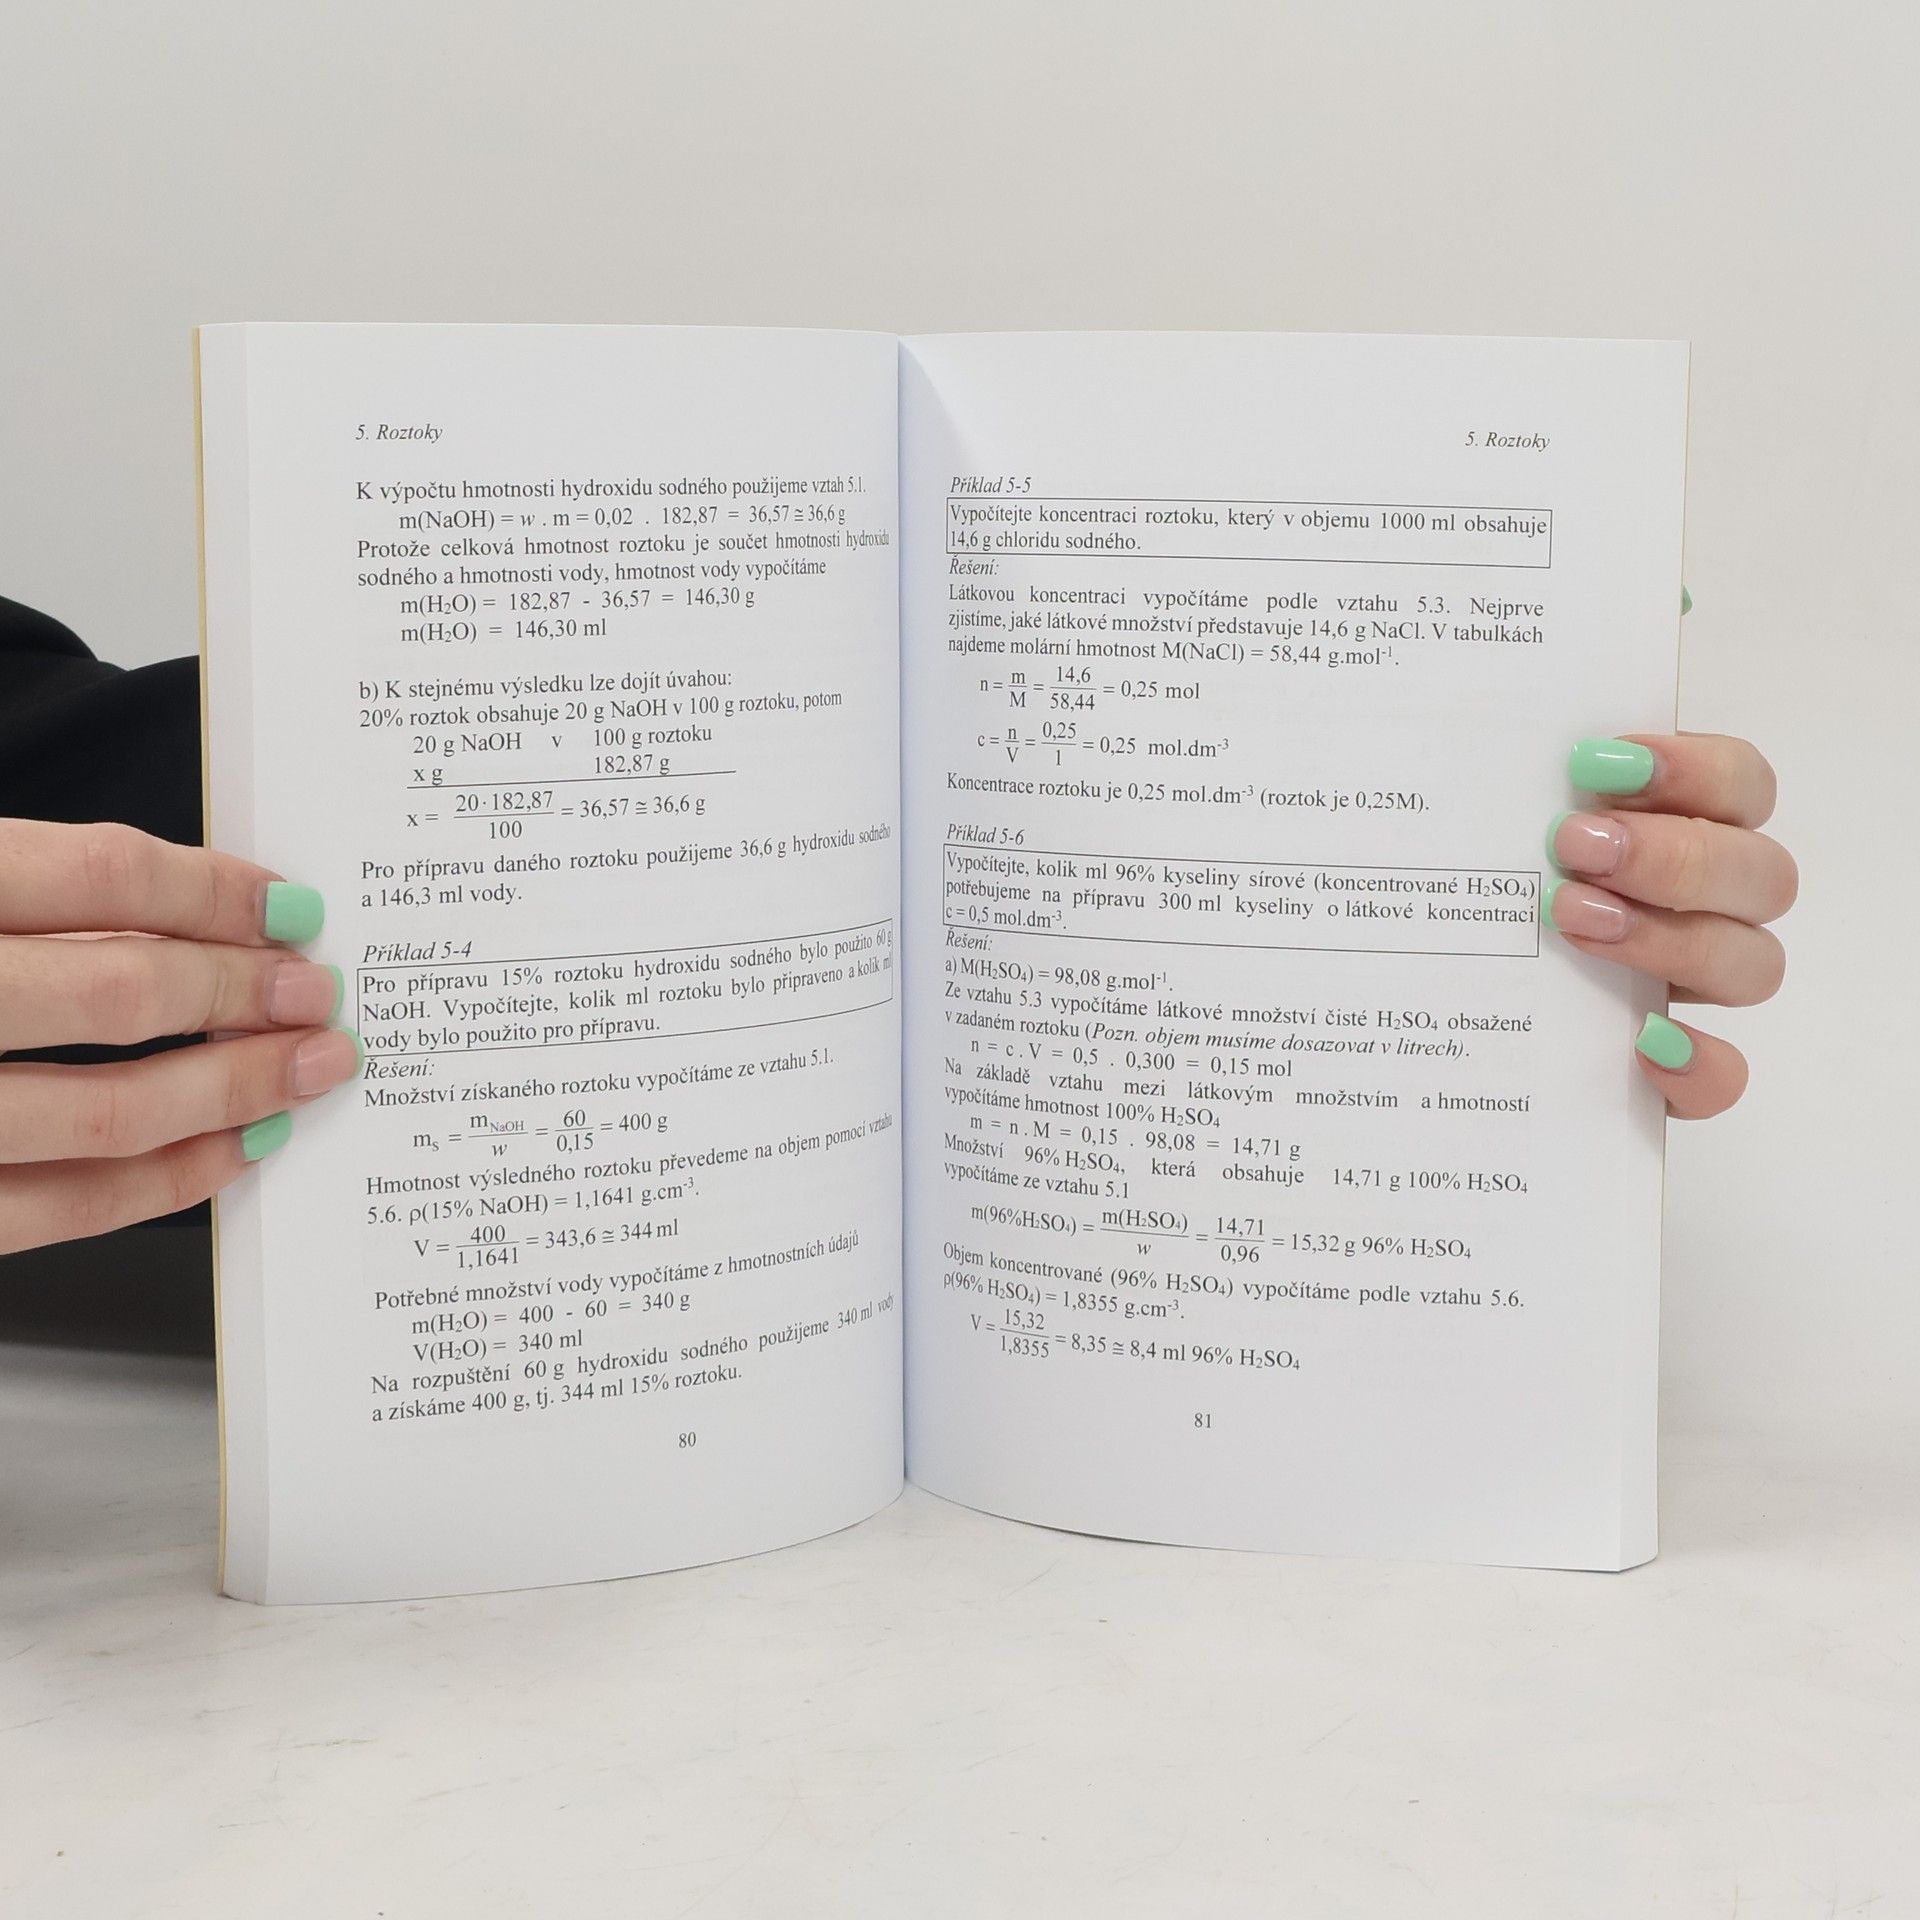 5. Roztoky
K výpočtu hmotnosti hydroxidu sodného použijeme vztah 5.1.
m(NaOH) = w . m = 0,02 . 182,87 = 36,57 ≅ 36,6 g
Protože celková hmotnost roztoku je součet hmotnosti hydroxidu
sodného a hmotnosti vody, hmotnost vody vypočítáme
m(H₂O) = 182,87 - 36,57 = 146,30 g
m(H₂O) = 146,30 ml
b) K stejnému výsledku lze dojít úvahou:
20% roztok obsahuje 20 g NaOH v 100 g roztoku, potom
20 g NaOH v 100 g roztoku
x g 182,87 g
x = 20·182,87 / 100 = 36,57 ≅ 36,6 g
Pro přípravu daného roztoku použijeme 36,6 g hydroxidu sodného
a 146,3 ml vody.
Příklad 5-4
Pro přípravu 15% roztoku hydroxidu sodného bylo použito 60 g
NaOH. Vypočítejte, kolik ml roztoku bylo připraveno a kolik ml
vody bylo použito pro přípravu.
Řešení:
Množství získaného roztoku vypočítáme ze vztahu 5.1.
mₛ = m_NaOH / w = 60 / 0,15 = 400 g
Hmotnost výsledného roztoku převedeme na objem pomocí vztahu
5.6. ρ(15% NaOH) = 1,1641 g.cm⁻³.
V = 400 / 1,1641 = 343,6 ≅ 344 ml
Potřebné množství vody vypočítáme z hmotnostních údajů
m(H₂O) = 400 - 60 = 340 g
V(H₂O) = 340 ml
Na rozpuštění 60 g hydroxidu sodného použijeme 340 ml vody
a získáme 400 g, tj. 344 ml 15% roztoku.
80
5. Roztoky
Příklad 5-5
Vypočítejte koncentraci roztoku, který v objemu 1000 ml obsahuje
14,6 g chloridu sodného.
Řešení:
Látkovou koncentraci vypočítáme podle vztahu 5.3. Nejprve
zjistíme, jaké látkové množství představuje 14,6 g NaCl. V tabulkách
najdeme molární hmotnost M(NaCl) = 58,44 g.mol⁻¹.
n = m / M = 14,6 / 58,44 = 0,25 mol
c = n / V = 0,25 / 1 = 0,25 mol.dm⁻³
Koncentrace roztoku je 0,25 mol.dm⁻³ (roztok je 0,25M).
Příklad 5-6
Vypočítejte, kolik ml 96% kyseliny sírové (koncentrované H₂SO₄)
potřebujeme na přípravu 300 ml kyseliny o látkové koncentraci
c = 0,5 mol.dm⁻³.
Řešení:
a) M(H₂SO₄) = 98,08 g.mol⁻¹.
Ze vztahu 5.3 vypočítáme látkové množství čisté H₂SO₄ obsažené
v zadaném roztoku (Pozn. objem musíme dosazovat v litrech).
n = c . V = 0,5 . 0,300 = 0,15 mol
Na základě vztahu mezi látkovým množstvím a hmotností
vypočítáme hmotnost 100% H₂SO₄
m = n . M = 0,15 . 98,08 = 14,71 g
Množství 96% H₂SO₄, která obsahuje 14,71 g 100% H₂SO₄
vypočítáme ze vztahu 5.1
m(96%H₂SO₄) = m(H₂SO₄) / w = 14,71 / 0,96 = 15,32 g 96% H₂SO₄
Objem koncentrované (96% H₂SO₄) vypočítáme podle vztahu 5.6.
ρ(96% H₂SO₄) = 1,8355 g.cm⁻³.
V = 15,32 / 1,8355 = 8,35 ≅ 8,4 ml 96% H₂SO₄
81